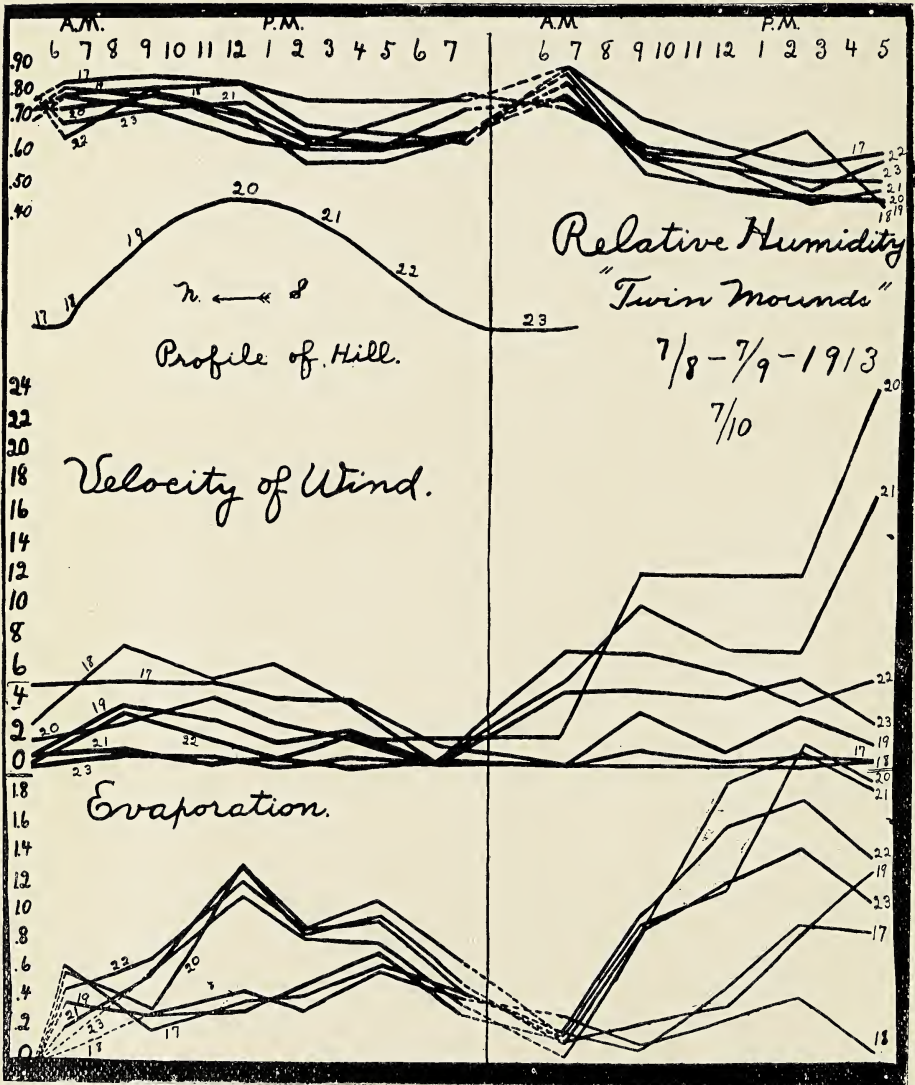 A.M. P.M. A.M P.M.
6 7 8 9 10 11 12 1 2 3 4 5 6 7 6 7 8 9 10 11 12 1 2 3 4 5
.90
.80
.70
.60
.50
.40
17
21
20
23
22
18
17
22
23
21
20
18 19
20
19
21
22
18
17
23
N. S
Profile of Hill.
Relative Humidity
"Twin Mounds"
7/8 - 7/9 - 1913
7/10
24
22
20
18
16
14
12
10
8
6
4
2
0
Velocity of Wind.
18
17
19
20
21
22
23
20
21
22
23
19
17
18
1.8
1.6
1.4
1.2
1.0
.8
.6
.4
.2
0
Evaporation.
22
20
19
21
23
17
18
20
21
22
19
23
17
18